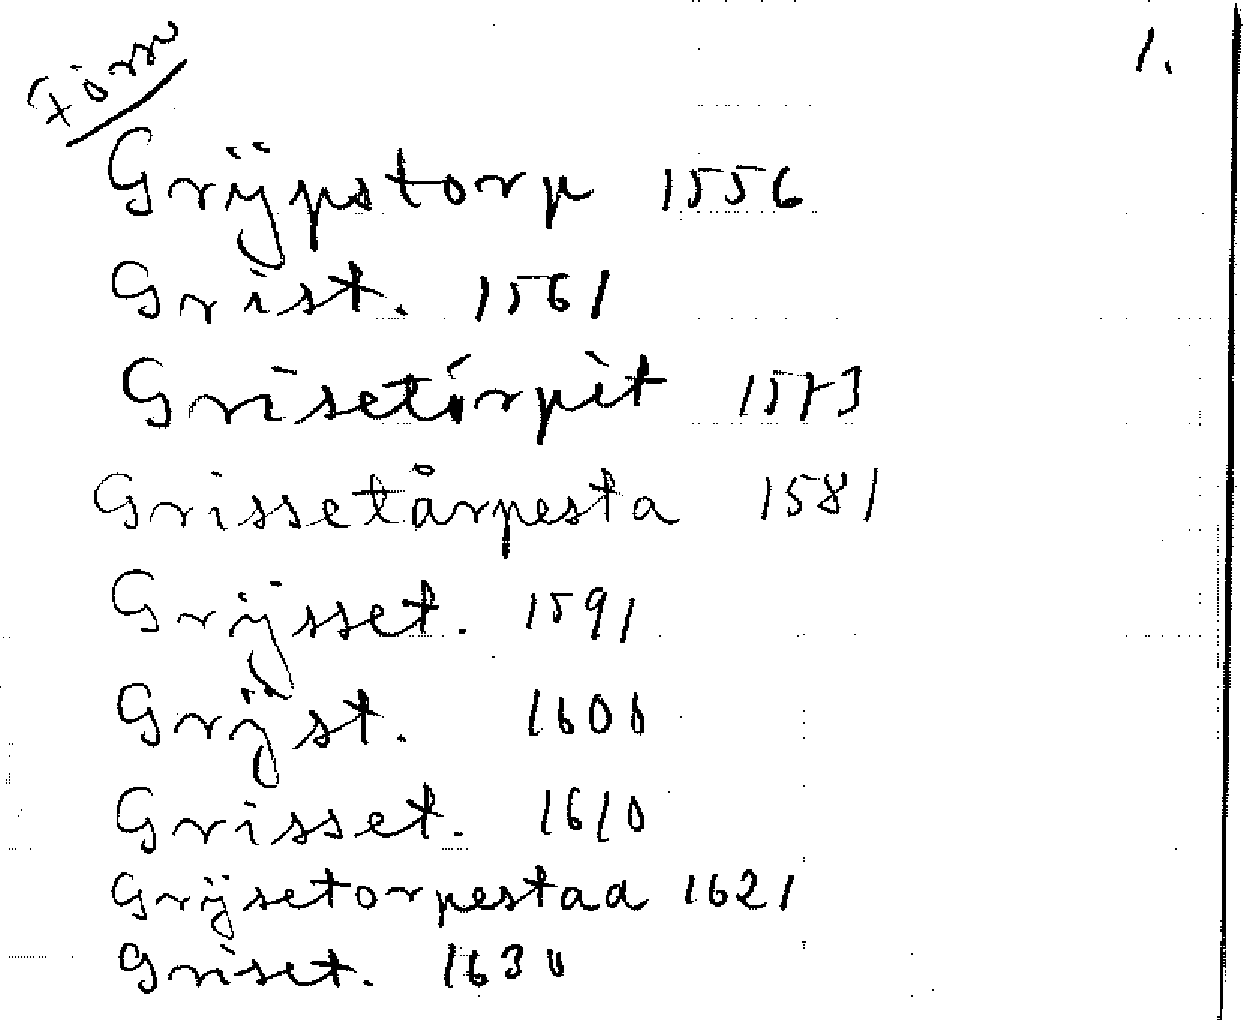 Förm 1.
Grijpstorp 1556
Grist. 1561
Grisetörpet 1573
Grissetårpesta 1581
Grijsset. 1591
Grijst. 1600
Grisset. 1610
Grijsetorpestad 1621
Griset. 1630